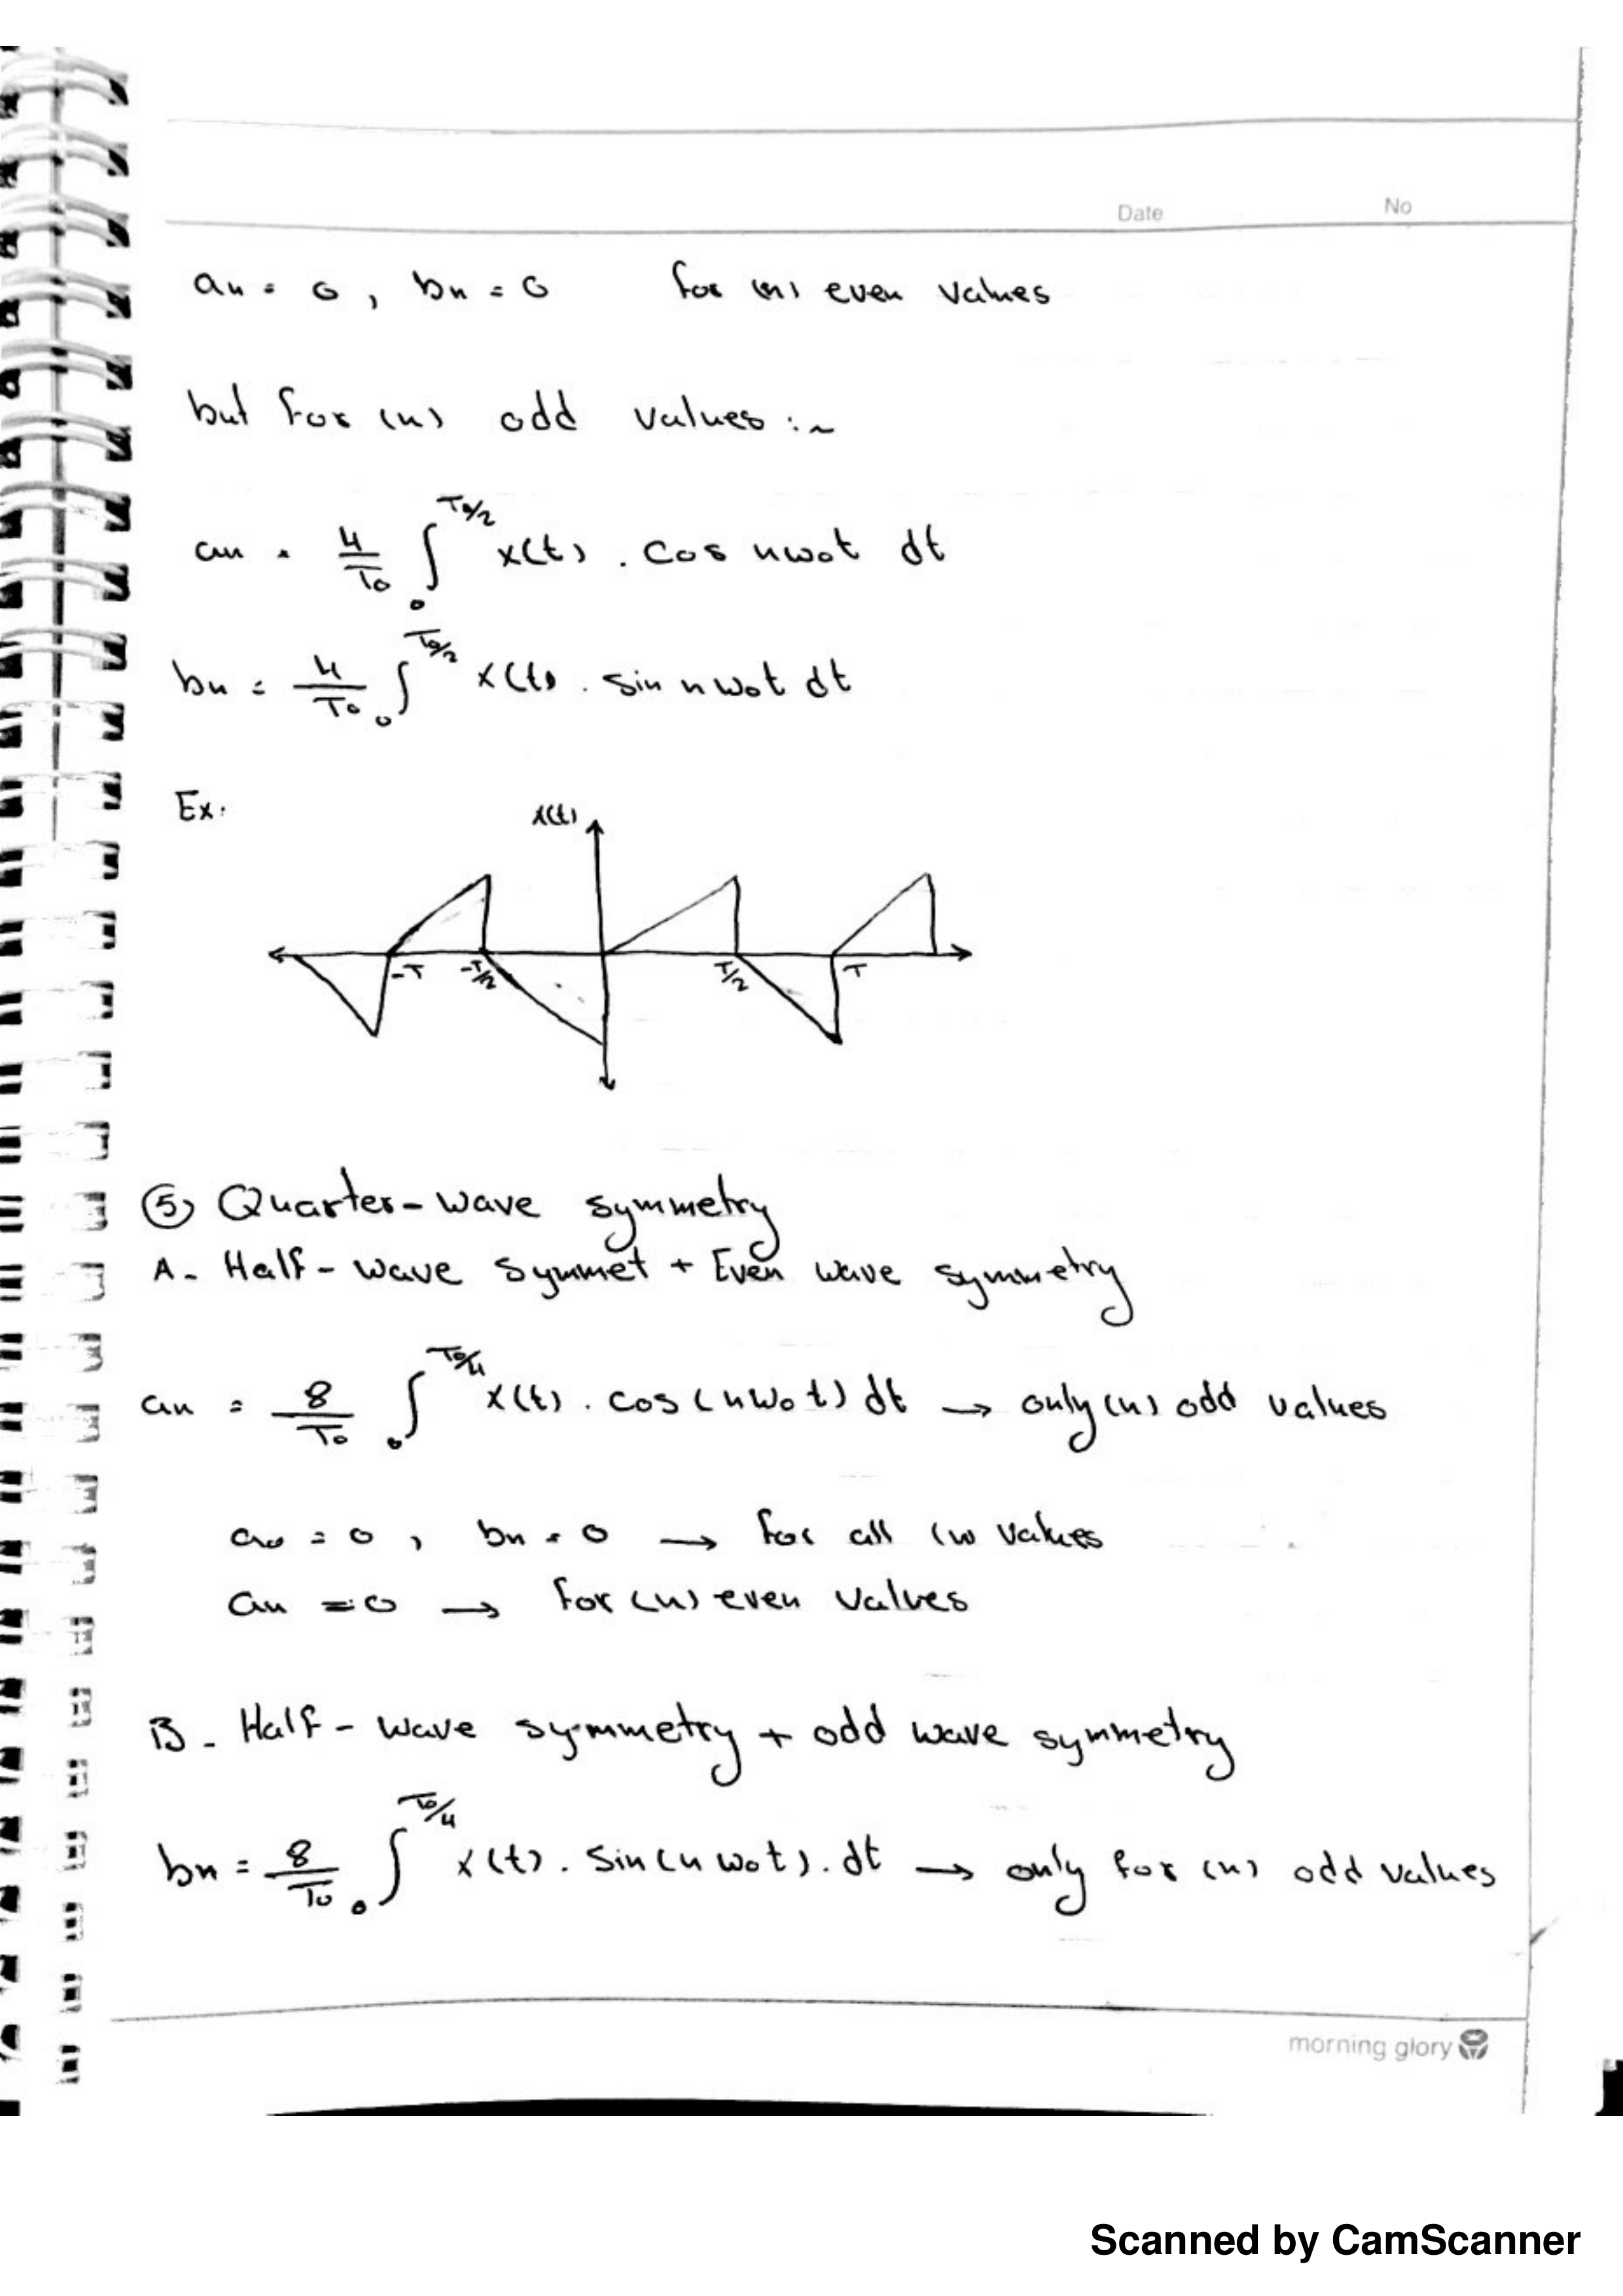 Date No
an = 0 , bn = 0 for (n) even values
but for (n) odd values :~
an = 4/To ∫₀^To/2 x(t) . cos nwot dt
bn = 4/To ∫₀^To/2 x(t) . sin nwot dt
Ex:
x(t)
-T -T/2 T/2 T
⑤ Quarter-wave symmetry
A- Half-wave symmet + Even wave symmetry
an = 8/To ∫₀^To/4 x(t) . cos(nwot) dt → only (n) odd values
ao = 0 , bn = 0 → for all (n) values
an = 0 → for (n) even values
B- Half-wave symmetry + odd wave symmetry
bn = 8/To ∫₀^To/4 x(t) . sin(nwot) . dt → only for (n) odd values
morning glory
Scanned by CamScanner